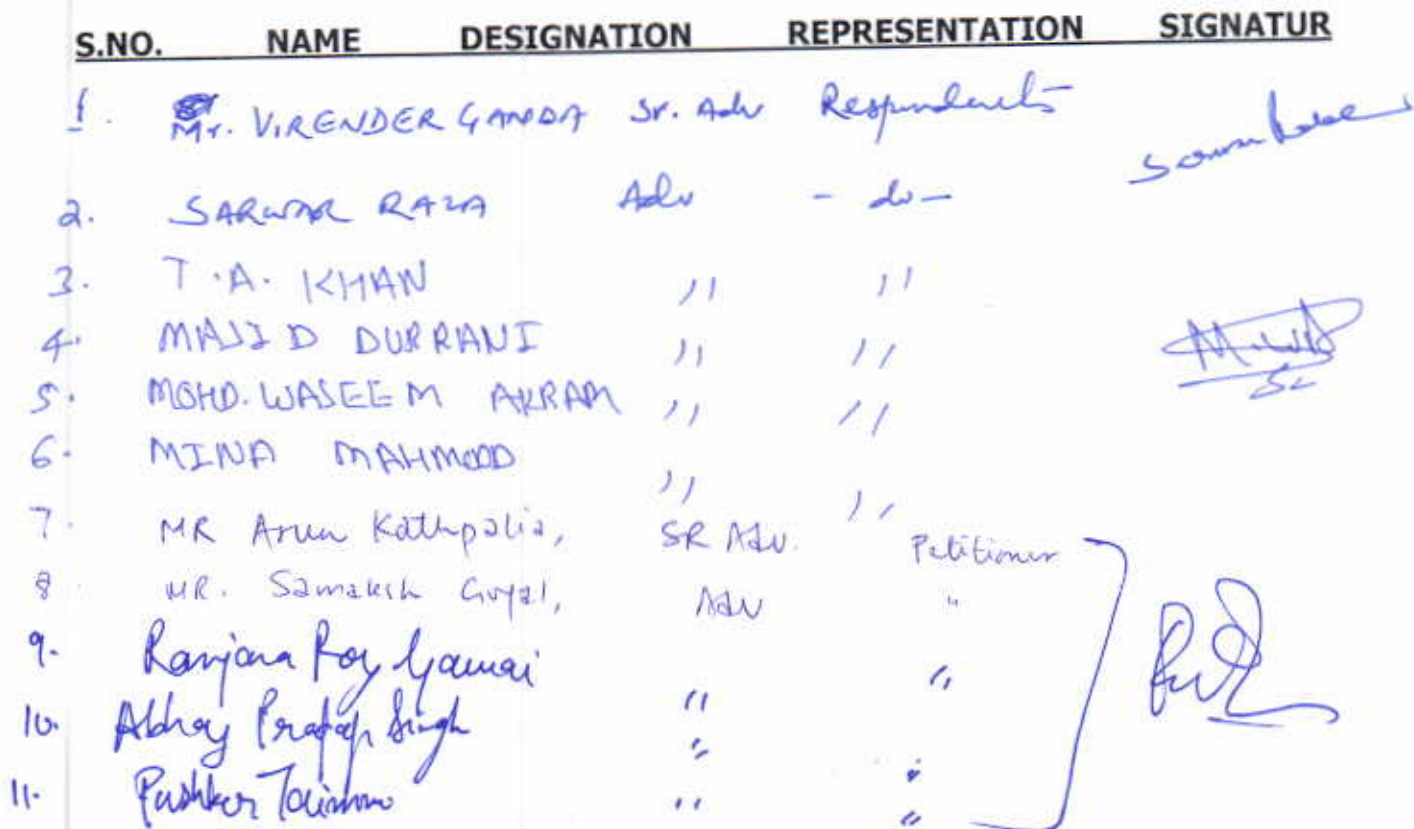 S.NO. NAME DESIGNATION REPRESENTATION SIGNATUR
1. Mr. VIRENDER GANDA Sr. Adv Respondents
2. SARWAR RAZA Adv - do -
3. T.A. KHAN " "
4. MAJID DURRANI " "
5. MOHD. WASEEM AKRAM " "
6. MINA MAHMOOD " "
7. MR Arun Kathpalia, SR Adv. Petitioner
8 MR. Samaksh Goyal, Adv "
9. Ranjana Roy Gawai " "
10. Abhay Pratap Singh " "
11. Pushkar " "